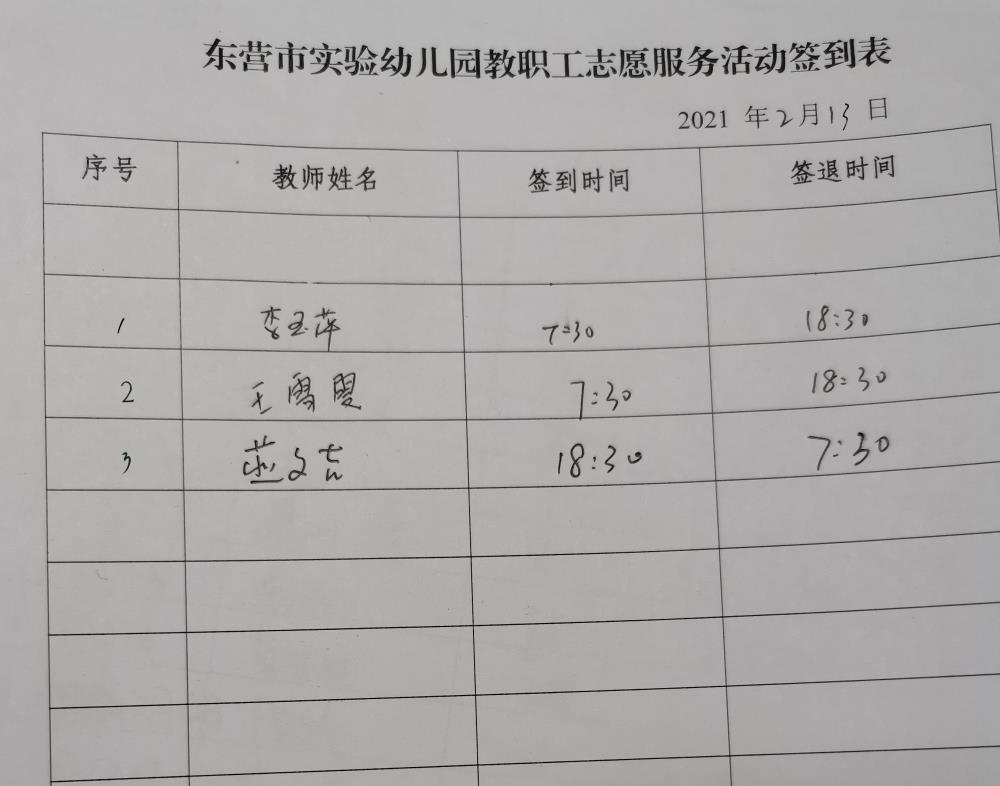 东营市实验幼儿园教职工志愿服务活动签到表
2021 年 2 月 13 日
序号 教师姓名 签到时间 签退时间
1 李玉萍 7:30 18:30
2 王雪 7:30 18:30
3 燕文吉 18:30 7:30